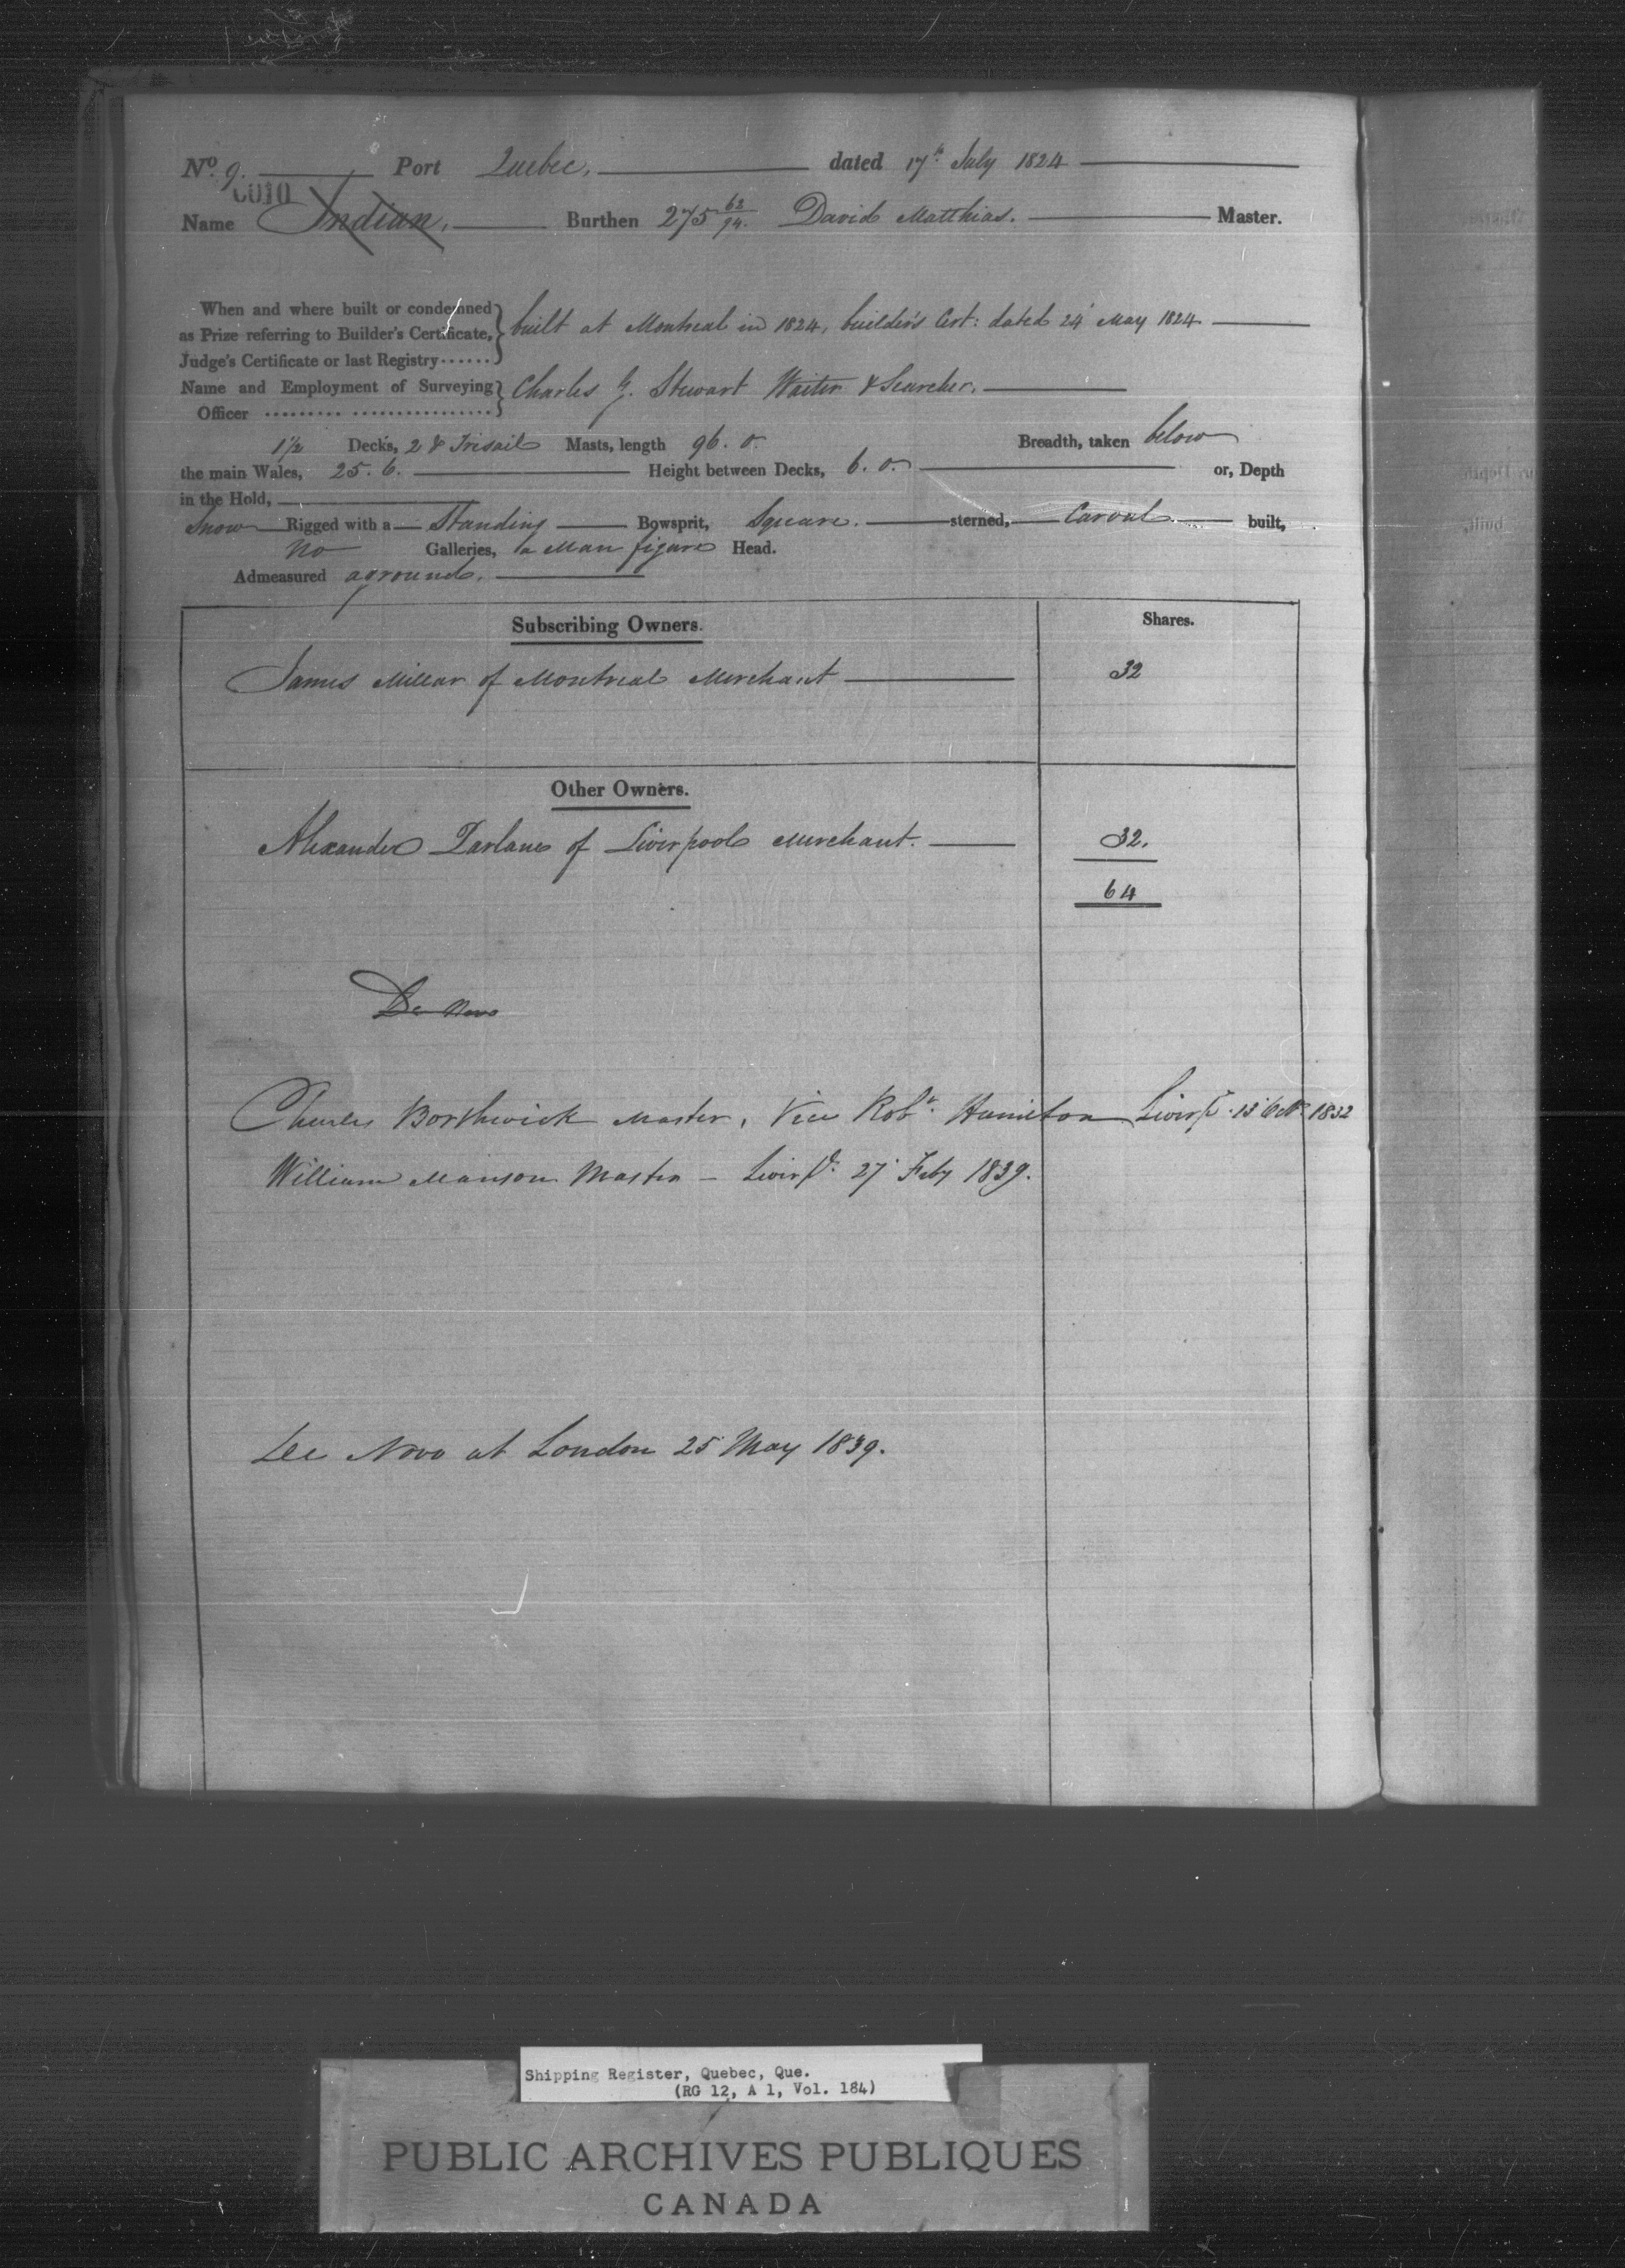 No. 9. Port Quebec, dated 17th July 1824
0010
Name Indian, Burthen 275 63/94. David Matthias. Master.
When and where built or condemned
as Prize referring to Builder's Certificate,
Judge's Certificate or last Registry
built at Montreal in 1824, builder's Cert: dated 24 May 1824
Name and Employment of Surveying
Officer
Charles G. Stewart Waiter & Searcher.
1½ Decks, 2 & Trisail Masts, length 96. 0. Breadth, taken below
the main Wales, 25. 6. Height between Decks, 6. 0. or, Depth
in the Hold,
Snow Rigged with a Standing Bowsprit, Square. sterned, Carvel built,
No Galleries, a Man figure Head.
Admeasured aground.
Subscribing Owners. Shares.
James Millar of Montreal Merchant 32
Other Owners.
Alexander Parlane of Liverpool Merchant. 32.
64
De Novo
Charles Borthwick Master, Vice Robt. Hamilton Liverpl. 13 Octr. 1832
William Manson Master - Liverpl. 27 Feby 1839.
De Novo at London 25 May 1839.
Shipping Register, Quebec, Que.
(RG 12, A 1, Vol. 184)
PUBLIC ARCHIVES PUBLIQUES
CANADA